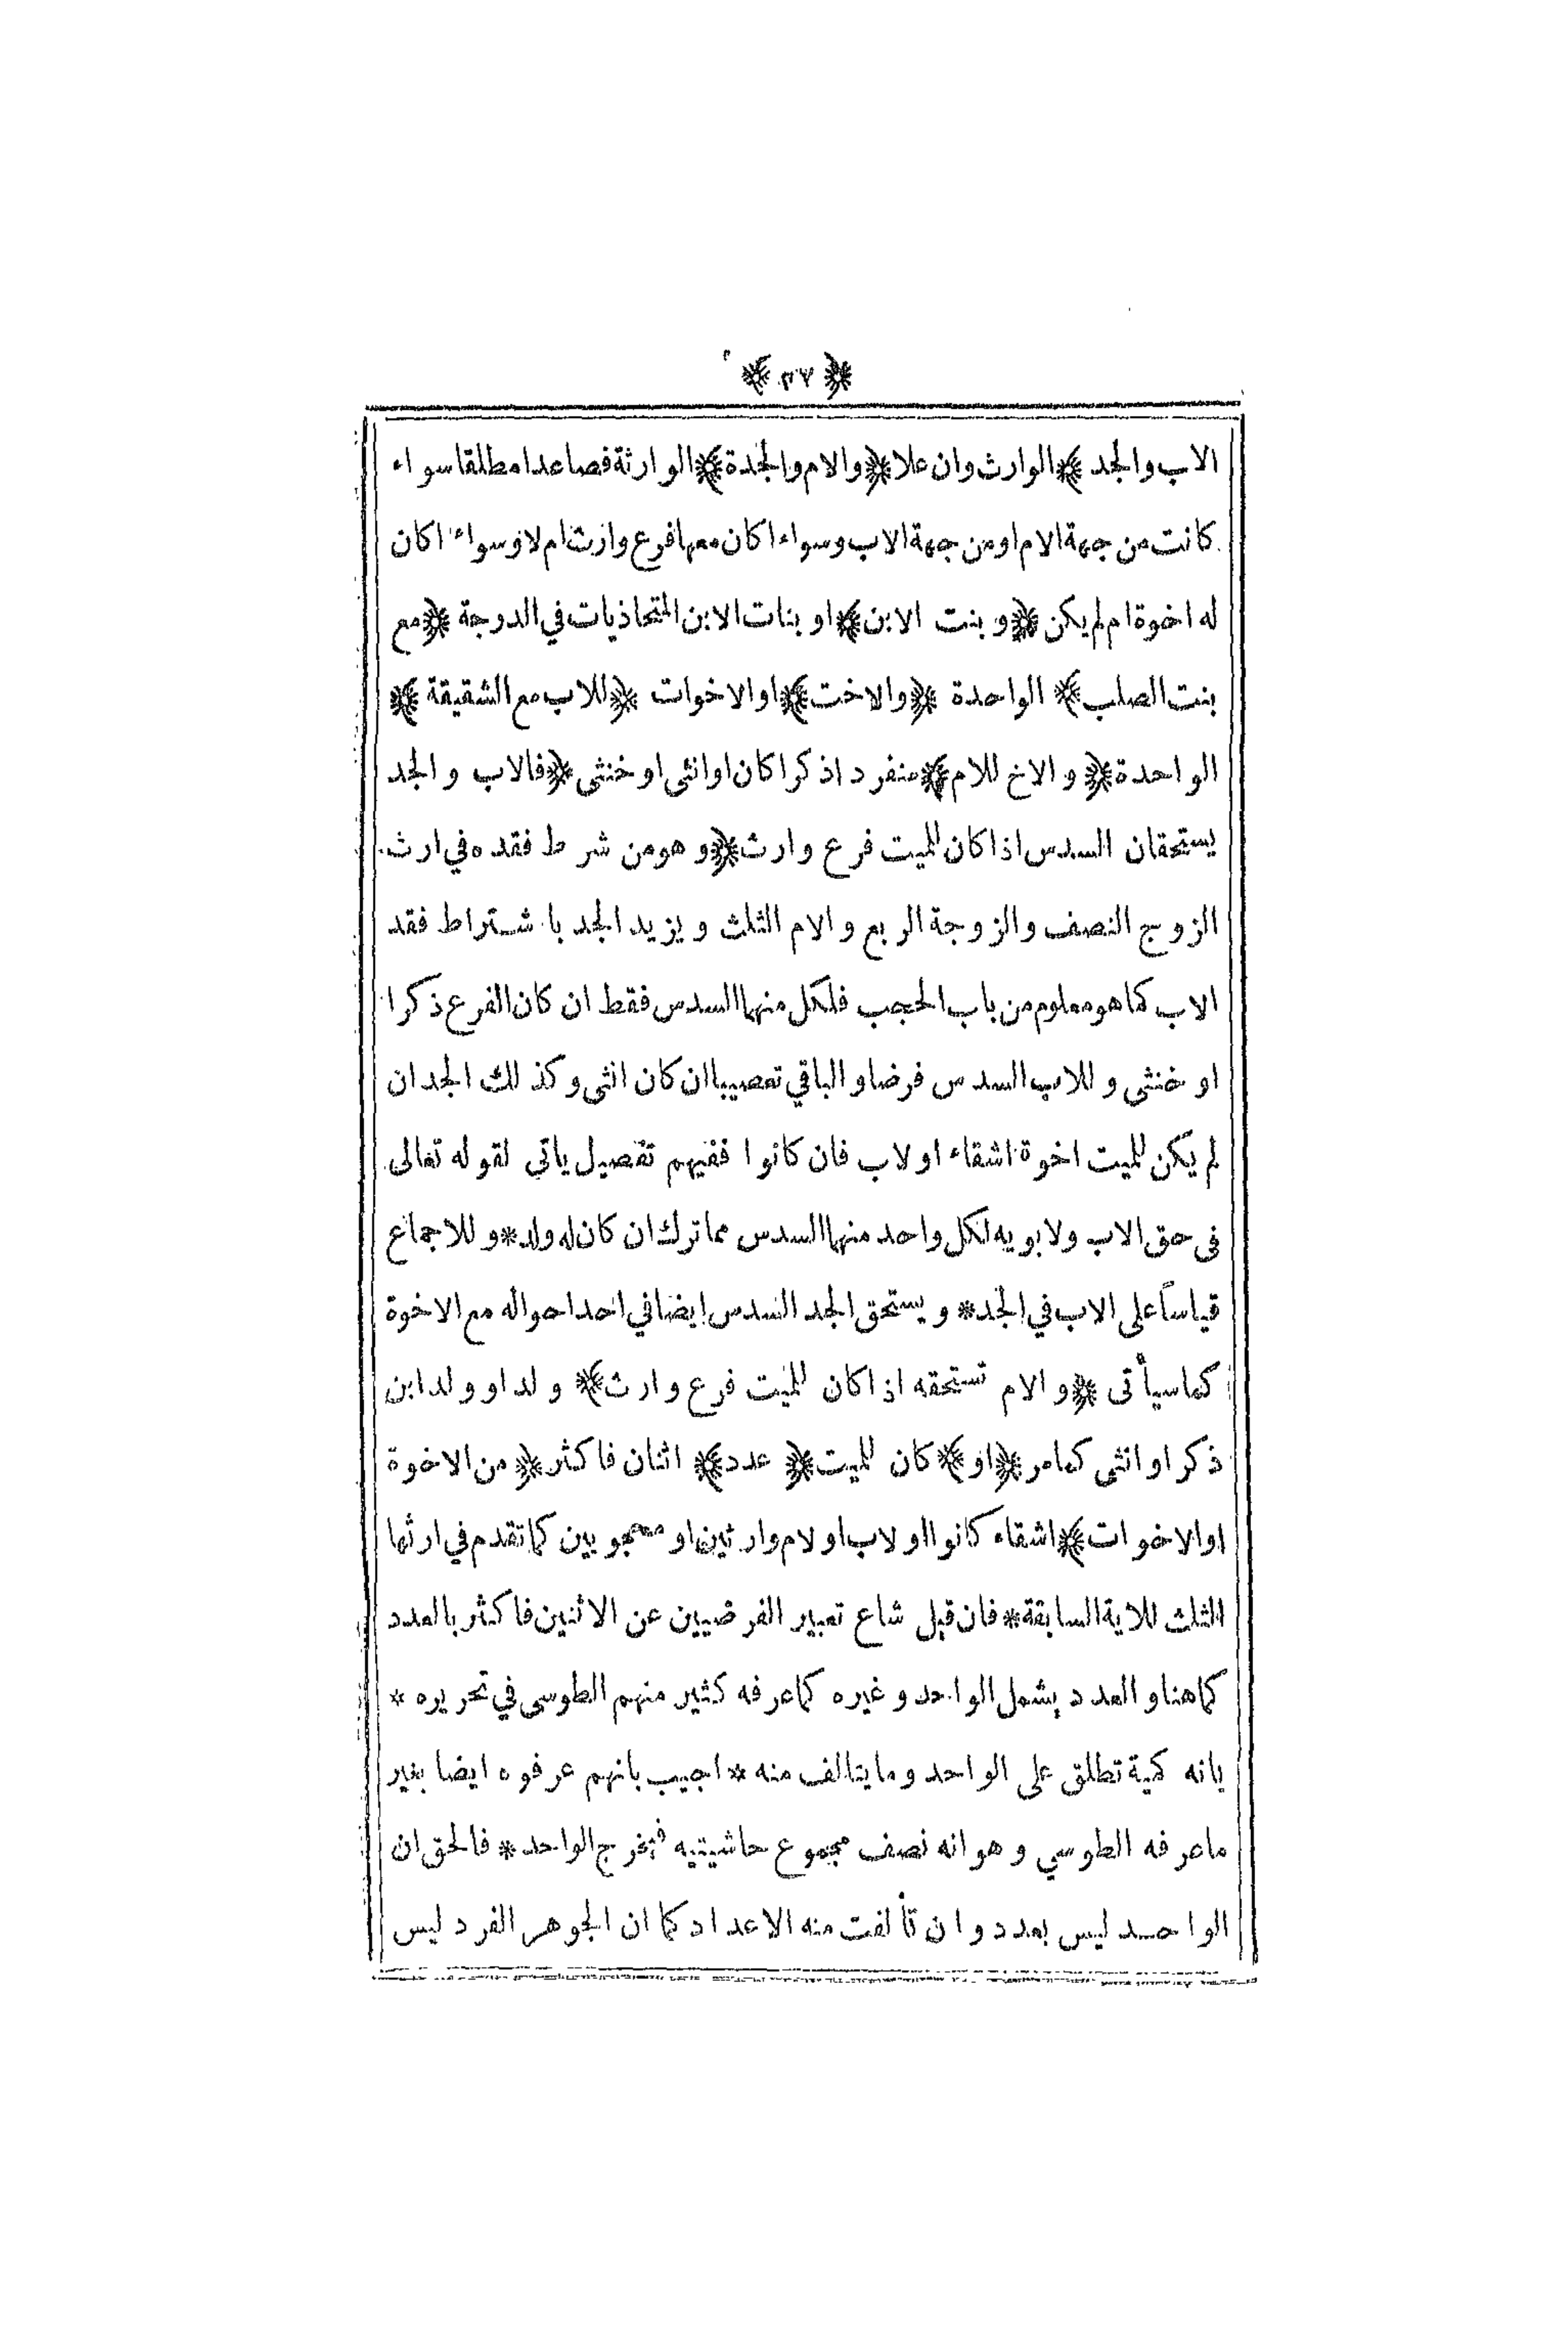 ﴿ ٣٧ ﴾
الاب والجد ﴾ الوارث وان علا ﴿ والام والجدة ﴾ الوارثة فصاعدا مطلقا سواء
كانت من جهة الام او من جهة الاب وسواء اكان معها فرع وارث ام لا وسواء اكان
له اخوة ام لم يكن ﴿ و بنت الابن ﴾ او بنات الابن المتحاذيات في الدرجة ﴿ مع
بنت الصلب ﴾ الواحدة ﴿ والاخت ﴾ او الاخوات ﴿ للاب مع الشقيقة ﴾
الواحدة ﴿ و الاخ للام ﴾ منفردا ذكرا كان او انثى او خنثى ﴿ فالاب والجد
يستحقان السدس اذا كان للميت فرع وارث ﴿ و هو من شرط فقده في ارث
الزوج النصف والزوجة الربع والام الثلث ويزيد الجد باشتراط فقد
الاب كما هو معلوم من باب الحجب فلكل منهما السدس فقط ان كان الفرع ذكرا
او خنثى و للاب السدس فرضا و الباقي تعصيبا ان كان انثى وكذلك الجد ان
لم يكن للميت اخوة اشقاء او لاب فان كانوا ففيهم تفصيل ياتي لقوله تعالى
في حق الاب ولابويه لكل واحد منهما السدس مما ترك ان كان له ولد * و للاجماع
قياساً على الاب في الجد * و يستحق الجد السدس ايضا في احد احواله مع الاخوة
كما سيأتى ﴿ و الام تستحقه اذا كان للميت فرع وارث ﴾ ولد او ولد ابن
ذكر او انثى كما مر ﴿ او ﴾ كان للميت ﴿ عدد ﴾ اثنان فاكثر ﴿ من الاخوة
او الاخوات ﴾ اشقاء كانوا او لاب او لام وارثين او محجوبين كما تقدم في ارثها
الثلث للاية السابقة * فان قيل شاع تعبير الفرضيين عن الاثنين فاكثر بالعدد
كما هنا و العدد يشمل الواحد و غيره كما عرفه كثير منهم الطوسي في تحريره *
بانه كمية تطلق على الواحد وما يتالف منه * اجيب بانهم عرفوه ايضا بغير
ما عرفه الطوسي و هو انه نصف مجموع حاشيتيه فيخرج الواحد * فالحق ان
الواحد ليس بعدد وان تألفت منه الاعداد كما ان الجوهر الفرد ليس